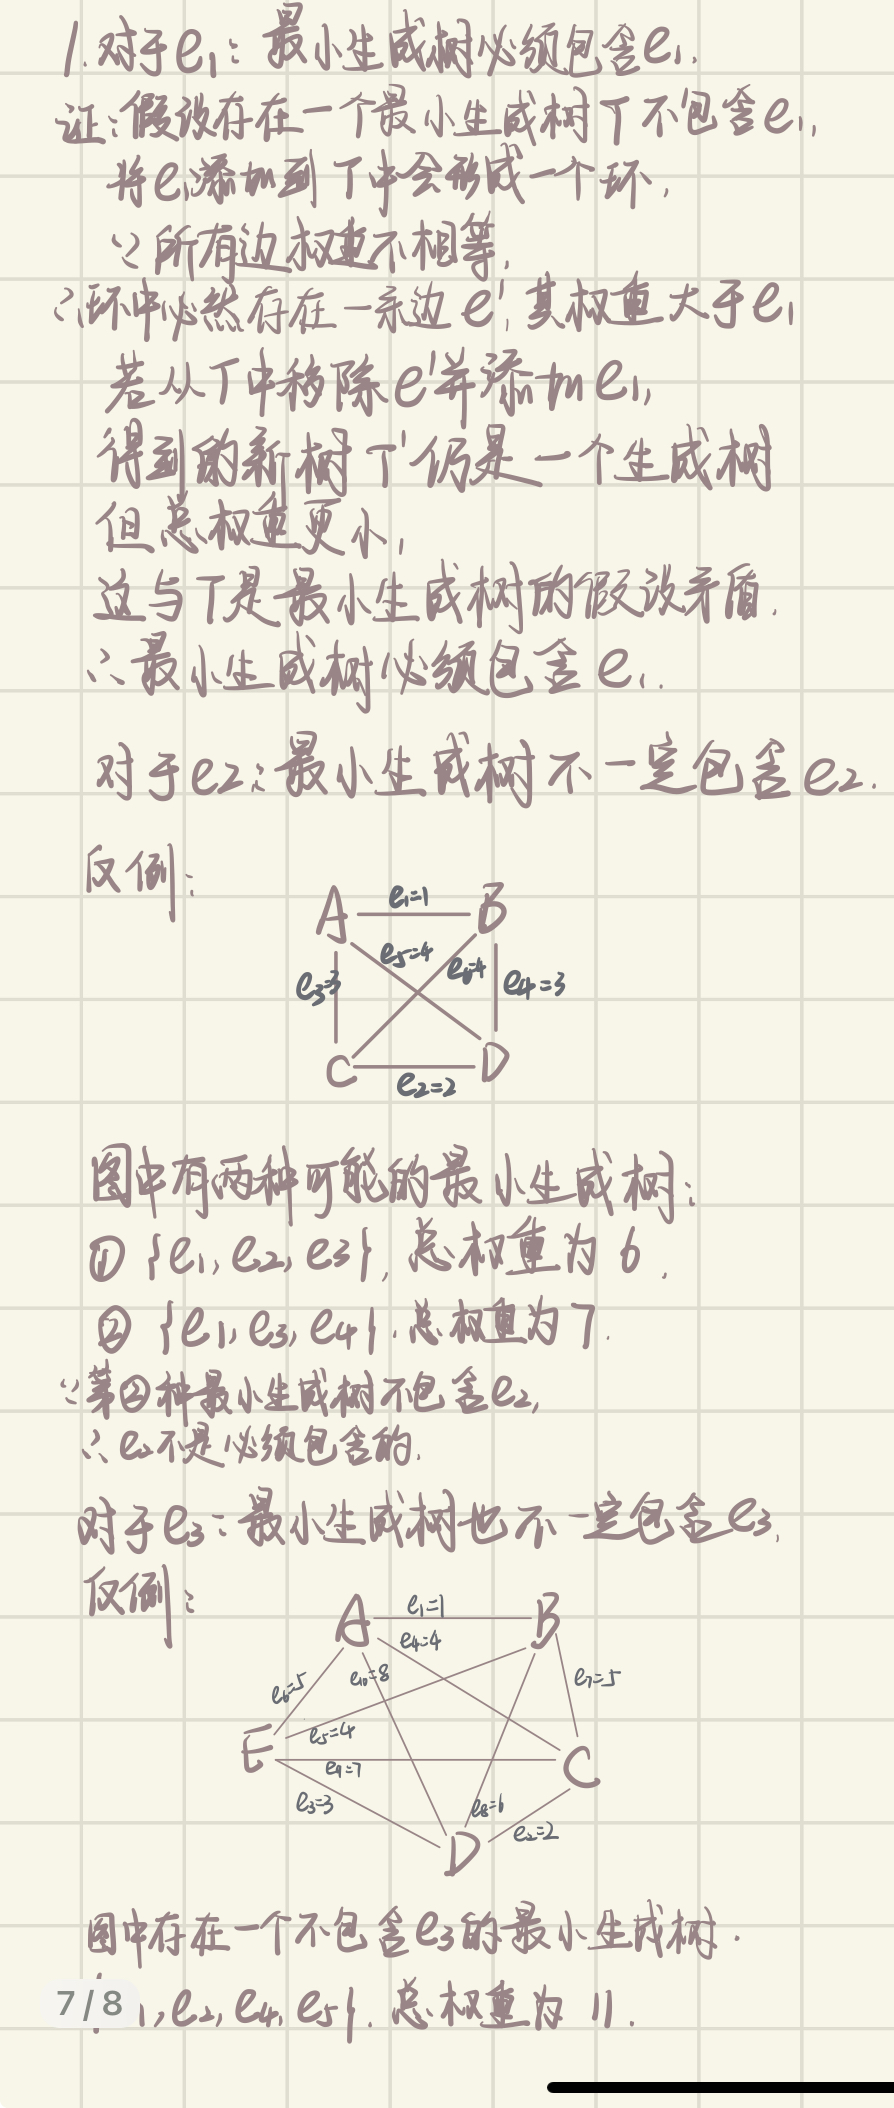 1. 对于e₁: 最小生成树必须包含e₁.
证:假设存在一个最小生成树T不包含e₁,
将e₁添加到T中会形成一个环,
∵所有边权重不相等,
∴环中必然存在一条边e', 其权重大于e₁
若从T中移除e'并添加e₁,
得到的新树T'仍是一个生成树
但总权重更小,
这与T是最小生成树的假设矛盾.
∴最小生成树必须包含e₁.
对于e2:最小生成树不一定包含e2.
反例:
A e₁=1 B
e₅=4 e₆=4
e₃=3 e4=3
C D
e₂=2
图中有两种可能的最小生成树:
① {e₁, e₂, e3}, 总权重为6.
② {e₁, e₃, e₄}. 总权重为7.
∵第②种最小生成树不包含e₂,
∴e₂不是必须包含的.
对于e₃:最小生成树也不一定包含e₃.
反例:
A e₁=1 B
e₄=4
e₆=5 e₁₀=8 e₇=5
E e₅=4 C
e₉=7
e₃=3 e₈=6
e₂=2
D
图中存在一个不包含e₃的最小生成树.
1, e₂, e₄, e₅}. 总权重为11.
7/8